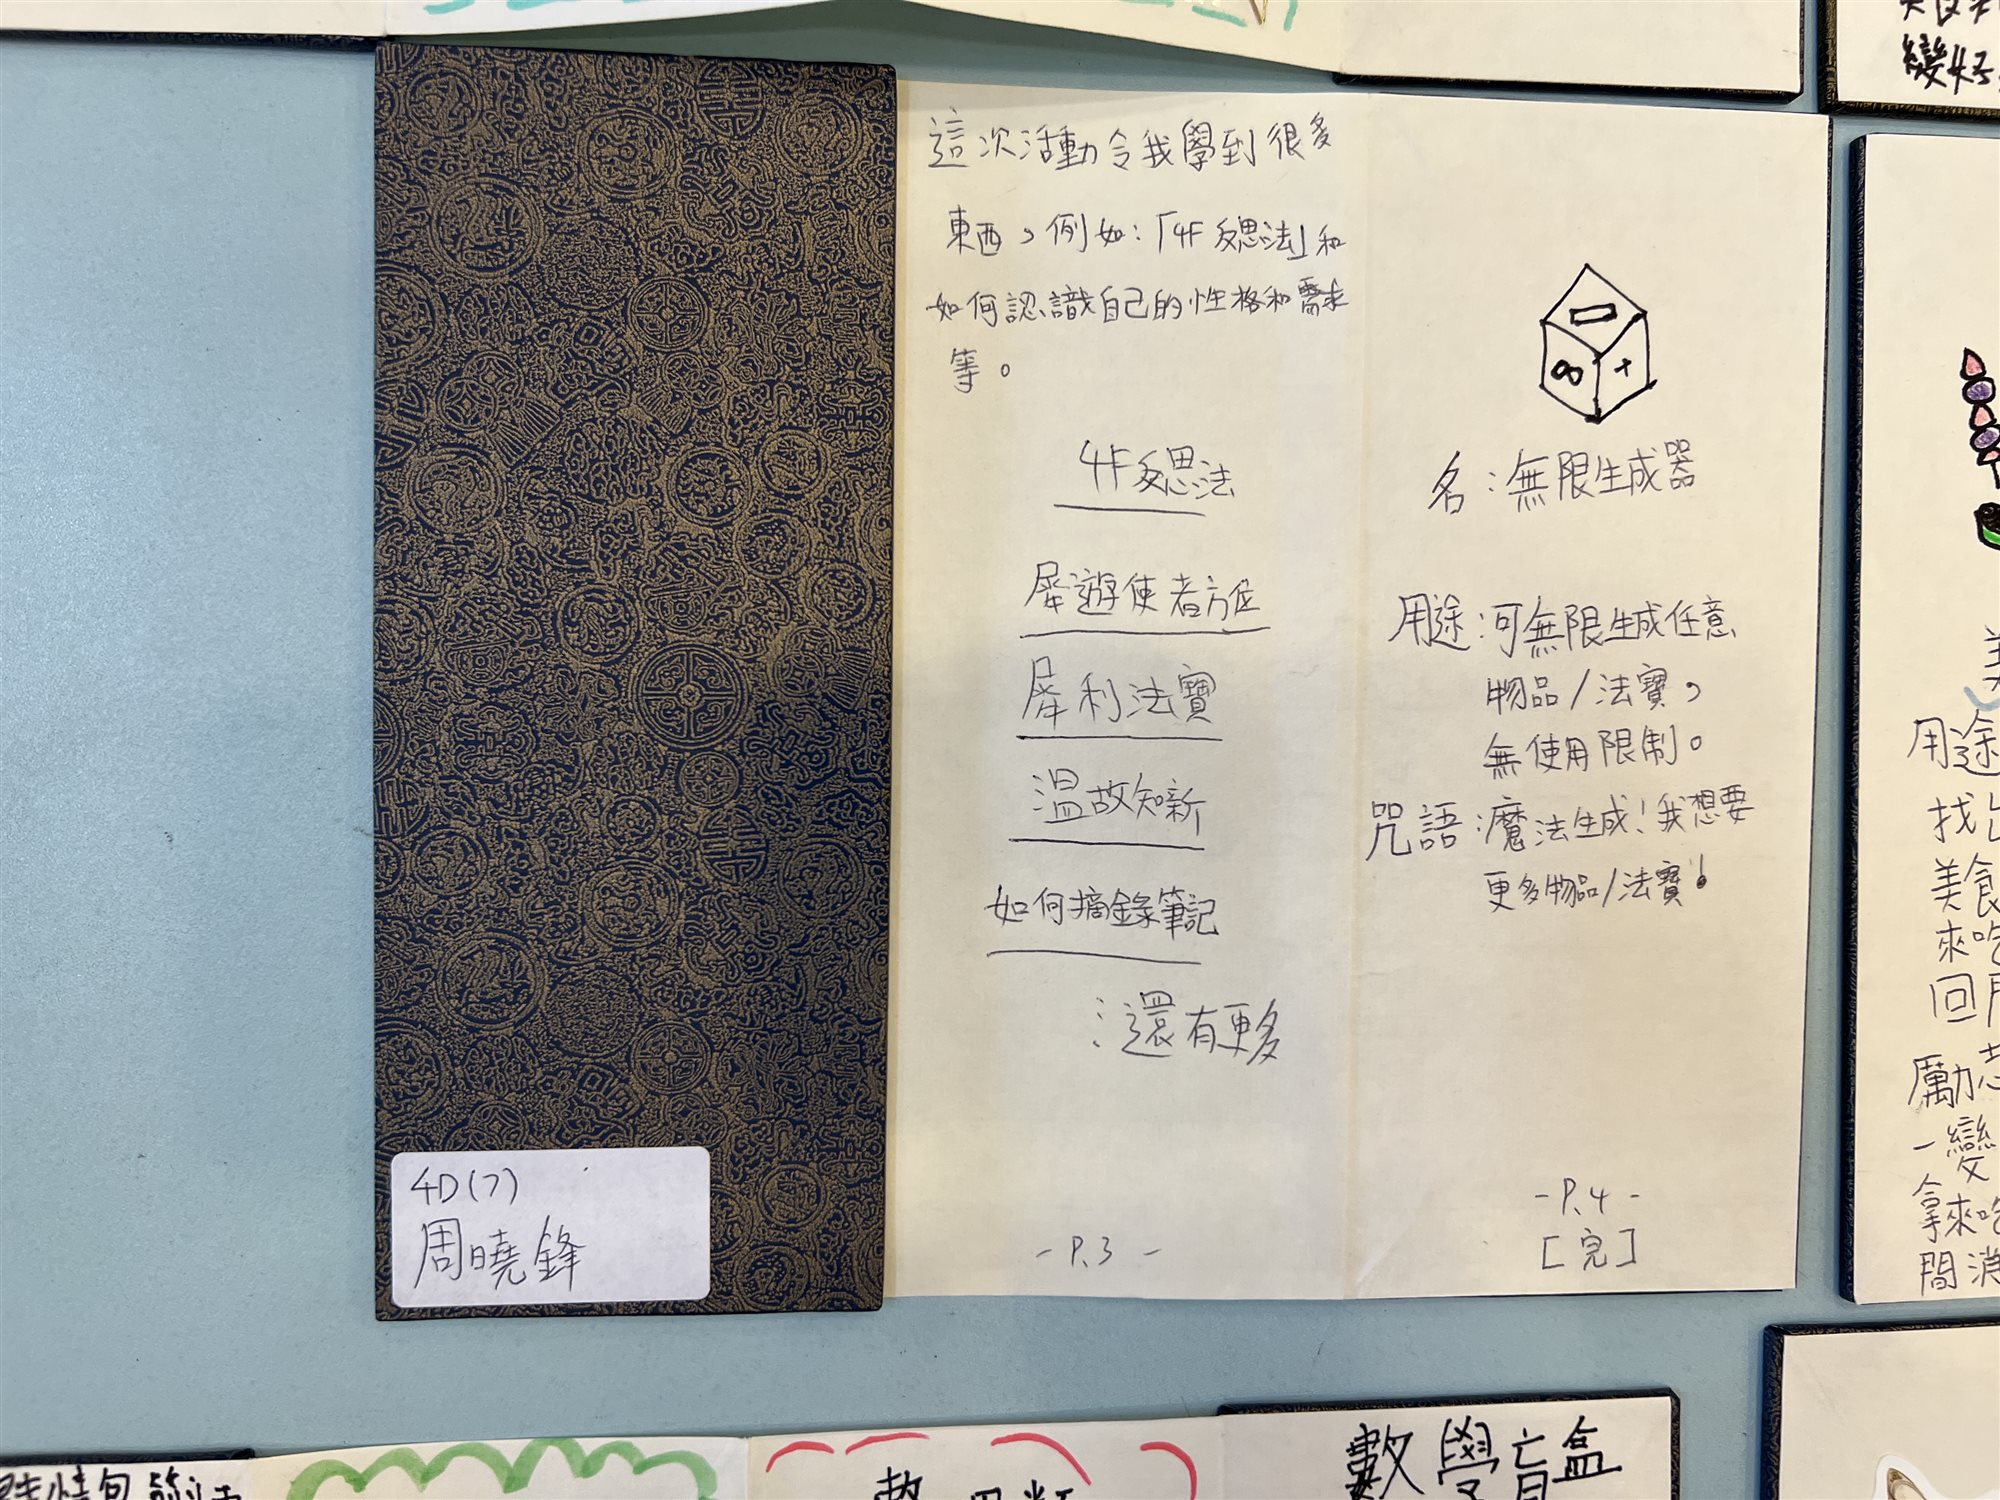 4D(7)
周曉鋒
這次活動令我學到很多
東西，例如：「4F反思法」和
如何認識自己的性格和需求
等。
4F反思法
犀遊使者方位
犀利法寶
溫故知新
如何摘錄筆記
⋮還有更多
- P.3 -
∞ +
名：無限生成器
用途：可無限生成任意
物品/法寶，
無使用限制。
咒語：魔法生成！我想要
更多物品/法寶！
- P.4 -
[完]
變好
用途
找出
美食
來吃
回
厲
一變
拿來吃
間消
數學盲盒